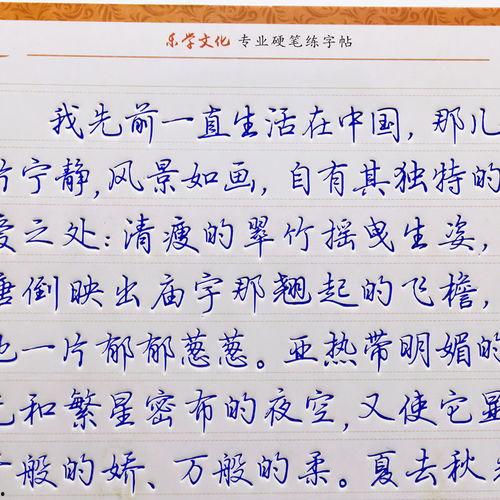 乐学文化 专业硬笔练字帖
我先前一直生活在中国，那儿
宁静，风景如画，自有其独特的
爱之处：清瘦的翠竹摇曳生姿，
塘倒映出庙宇那翘起的飞檐，
地一片郁郁葱葱。亚热带明媚的
光和繁星密布的夜空，又使它显
千般的娇、万般的柔。夏去秋